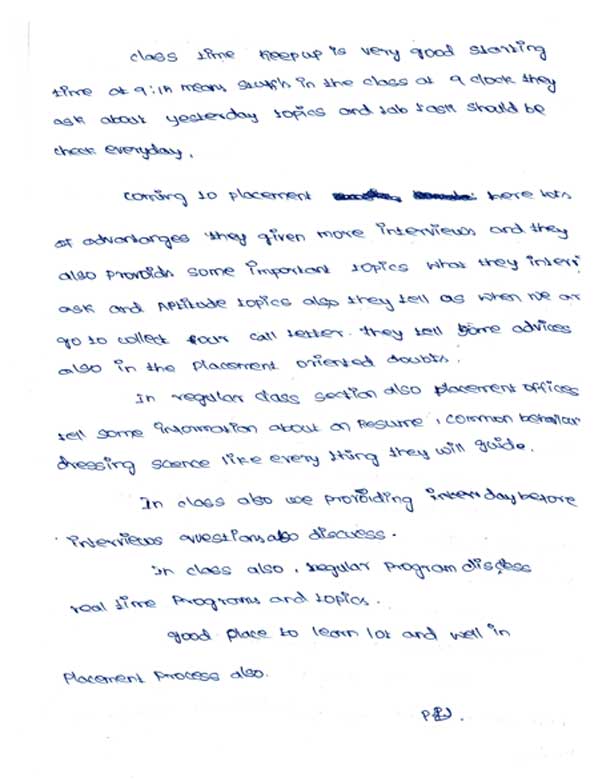 class time keepup is very good starting
time at 9: means in the class at 9 clock they
ask about yesterday topics and lab task should be
check everyday.
coming to placement here lots
of advantanges they given more interviews and they
also provoids some important topics what they interv
ask and Aptitude topics also they tell as when we ar
go to collect our call letter. they tell some advices
also in the placement oriented doubts.
In regular class section also placement offices
tell some information about an Resume, common behaviar
dressing science like every thing they will guide.
In class also we provoiding interv day before
interviews questions also discuess.
In class also, regular program discess
real time programs and topics.
good place to learn lot and well in
placement process also.